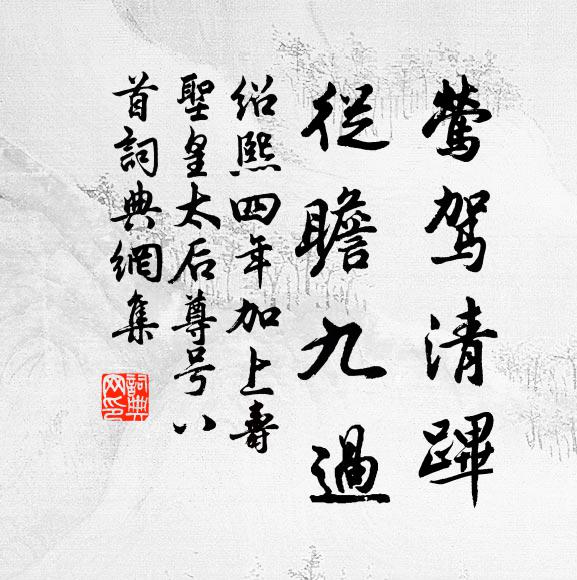 莺驾清蹕
從瞻九過
紹熙四年加上壽
聖皇太后尊号八
首詞典網集
詞典
网印